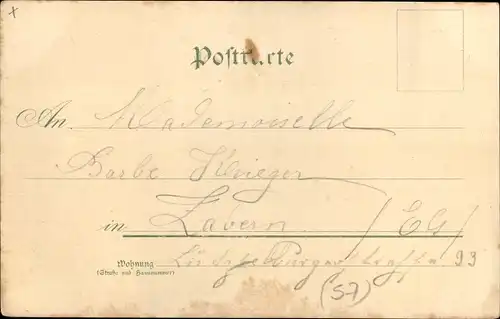 Postkarte
An Mademoiselle
Barbe Krieger
in Zabern / Els /
Wohnung
(Straße und Hausnummer)
Lützelburgerstraße 93
(57)